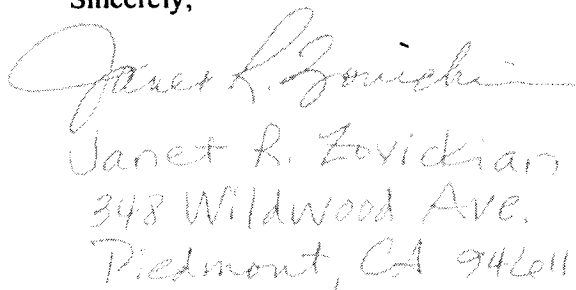 Sincerely,
Janet R. Zovickian
Janet R. Zovickian
348 Wildwood Ave.
Piedmont, CA 94611